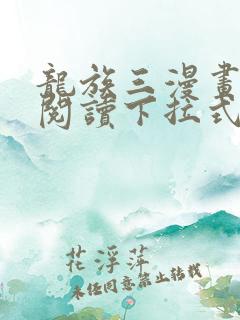 龍族三漫畫
閱讀下拉式
花浮萍
未经同意禁止转载